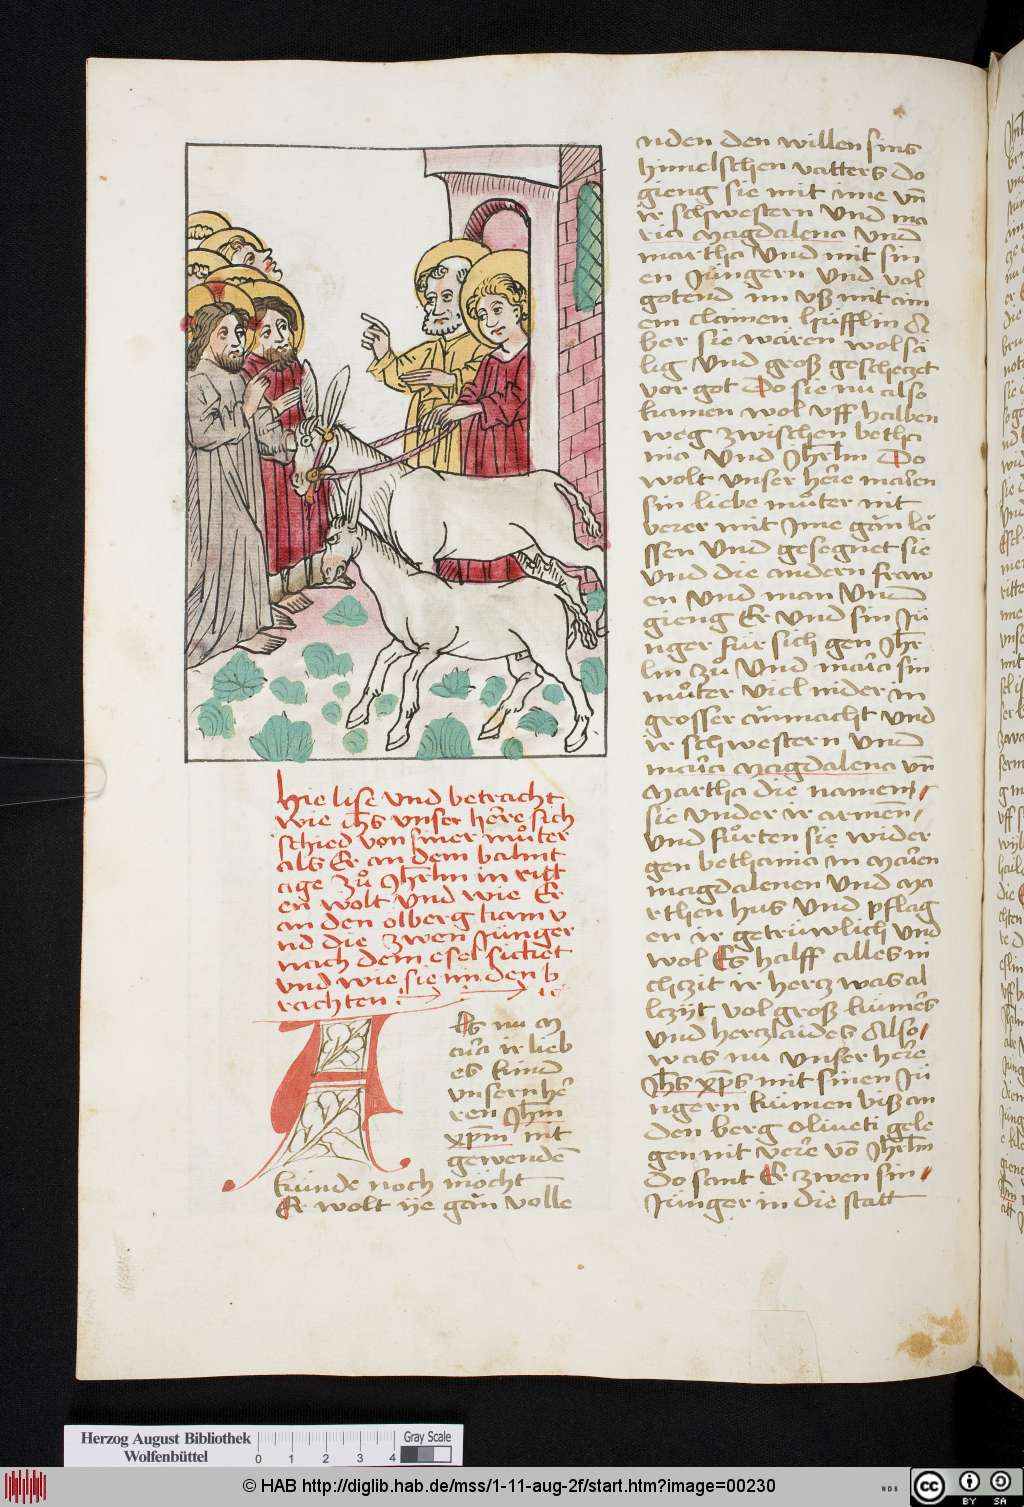 Hie lise vnd betracht
wie ihs vnser here sich
schied von siner muͦter
als Er an dem balmt
age zuͦ Jhrlm in ritt
en wolt vnd wie Er
an den olberg kam v
nd die zwen Jünger
nach dem esel sicket
vnd wie sie im den b
rachten
Als nu m
aria ir lieb
es kind
vnsern her
ren Jhm
xpm nit
gewenden
kunde noch möcht
Er wolt ye gan volle
nden den willen sins
himelschen vatters do
gieng sie mit ime vn
ir schwestern vnd ma
ria Magdalena vnd
martha vnd mit sin
en Jüngern vnd vol
gotend im vß mit ain
em clainen hüfflin A
ber sie wären vol sä
lig vnd groß geschetzt
vor got Do sie nu also
kamen wol vff halben
weg zwischen betha
nia vnd Jhrlm Do
wolt vnser here marien
sin liebe muͦter nit
verer mit Jme gan la
ssen vnd gesegnet sie
vnd die andern fraw
en vnd man vnd
gieng Er vnd sin Jü
nger für sich gen Jhr
lm zuͦ vnd maria sin
muͦter viel nider in
grosser anmacht vnd
ir schwestern vnd
maria Magdalena vn
Martha die namen
sie vnder ir armen
vnd fuͦrten sie wider
gen bethania in Marien
magdalenen vnd Ma
rthen hus vnd pflag
en ir getrüwlich vnd
wol Es halff alles ni
chzit ir hercz was al
lczyt vol groß kumers
vnd herczlaides Also
was nu vnser here
Jhs xps mit sinen Jü
ngern kumen biß an
den berg oliueti gele
gen nit vere von Jhrlm
do sant Er zwen sin
Jünger in die statt
Herzog August Bibliothek
Wolfenbüttel
0 1 2 3 4
Gray Scale
© HAB http://diglib.hab.de/mss/1-11-aug-2f/start.htm?image=00230
WDB
cc BY SA